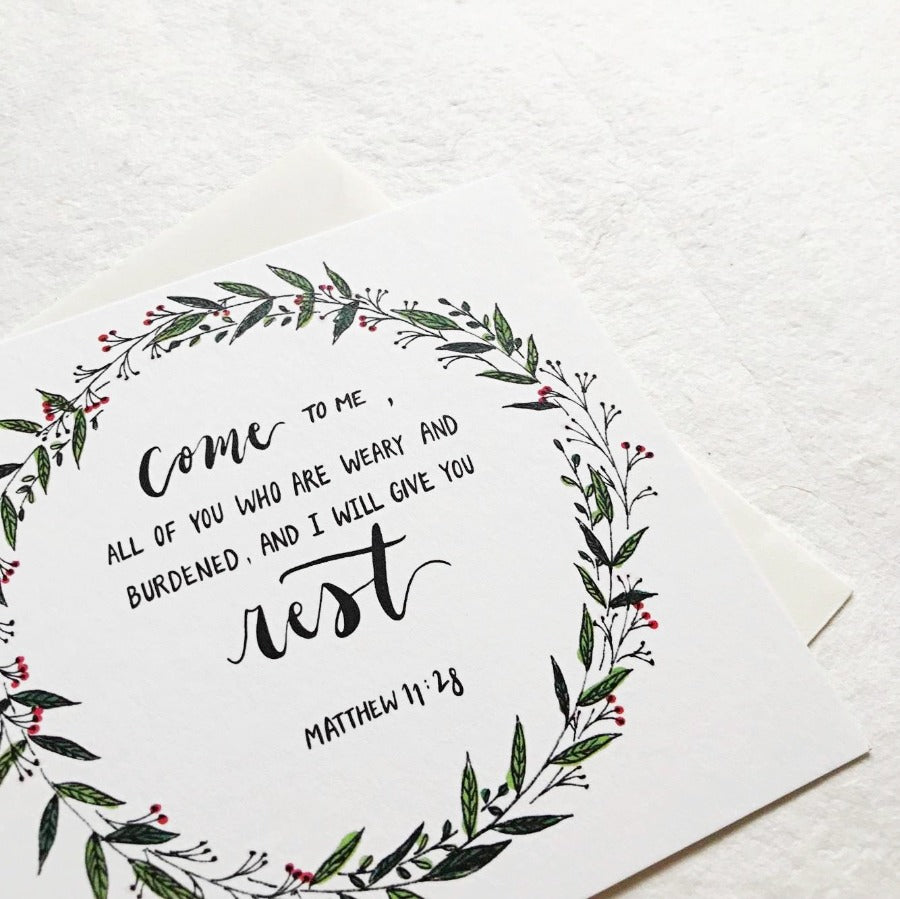 Come TO ME,
ALL OF YOU WHO ARE WEARY AND
BURDENED, AND I WILL GIVE YOU
rest
MATTHEW 11:28